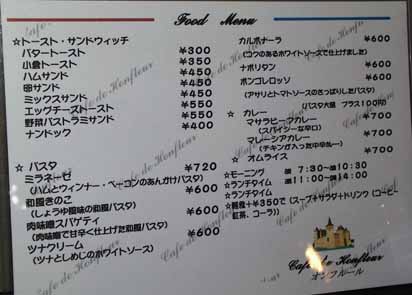 Food Menu
☆トースト・サンドウィッチ
バタートースト ¥300
小倉トースト ¥350
ハムサンド ¥450
卵サンド ¥450
ミックスサンド ¥450
エッグチーズトースト ¥550
野菜パストラミサンド ¥550
ナンドック ¥400
☆ パスタ
ミラネーゼ ¥720
(ハムとウィンナー・ベーコンのあんかけパスタ)
和風きのこ ¥600
(しょうゆ風味の和風パスタ)
肉味噌スパゲティ ¥600
(肉味噌で甘辛く仕上げた和風パスタ)
ツナクリーム ¥600
(ツナとしめじのホワイトソース)
カルボナーラ ¥600
(コクのあるホワイトソースで仕上げました)
ナポリタン ¥600
ボンゴレロッソ ¥600
(アサリとトマトソースのさっぱりしたパスタ)
パスタ大盛 プラス100円
☆ カレー
マサラビーフカレー ¥700
(スパイシーな辛口)
マレーシアカレー ¥700
(チキンが入った中辛カレー)
☆ オムライス ¥700
☆モーニング 7:30~10:30
☆ランチタイム 11:00~14:00
☆ランチタイム
☆軽食+¥350で(スープ+サラダ+ドリンク(コーヒー、紅茶、コーラ))
Cafe de Honfleur
オンフルール
Cafe de Honfleur